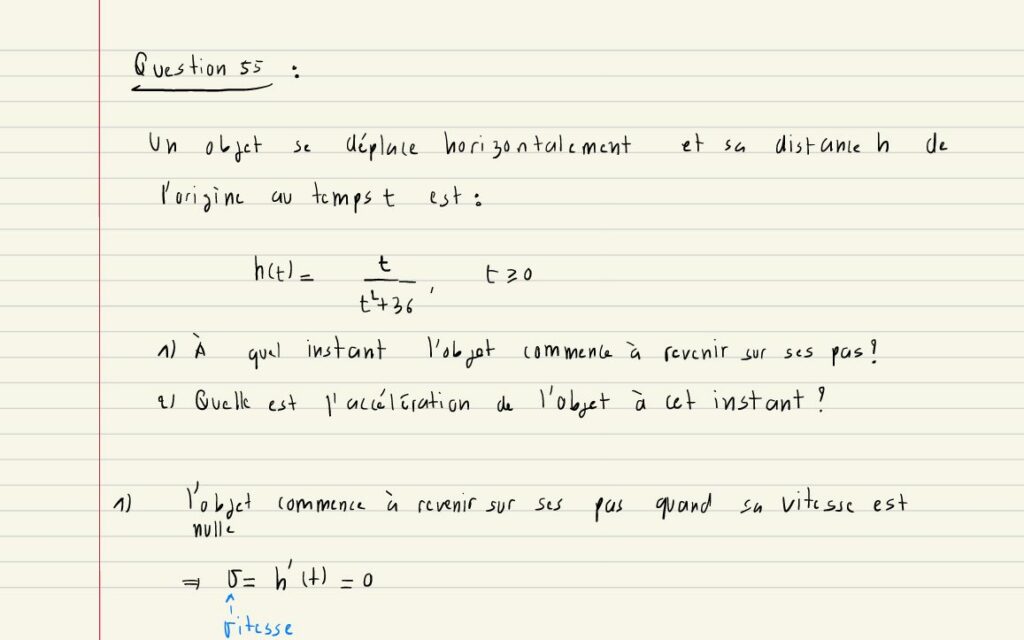 Question 55 :
Un objet se déplace horizontalement et sa distance h de
l'origine au temps t est :
h(t) = t / (t²+36), t ≥ 0
1) À quel instant l'objet commence à revenir sur ses pas ?
2) Quelle est l'accélération de l'objet à cet instant ?
1) l'objet commence à revenir sur ses pas quand sa vitesse est
nulle
⇒ v = h'(t) = 0
vitesse